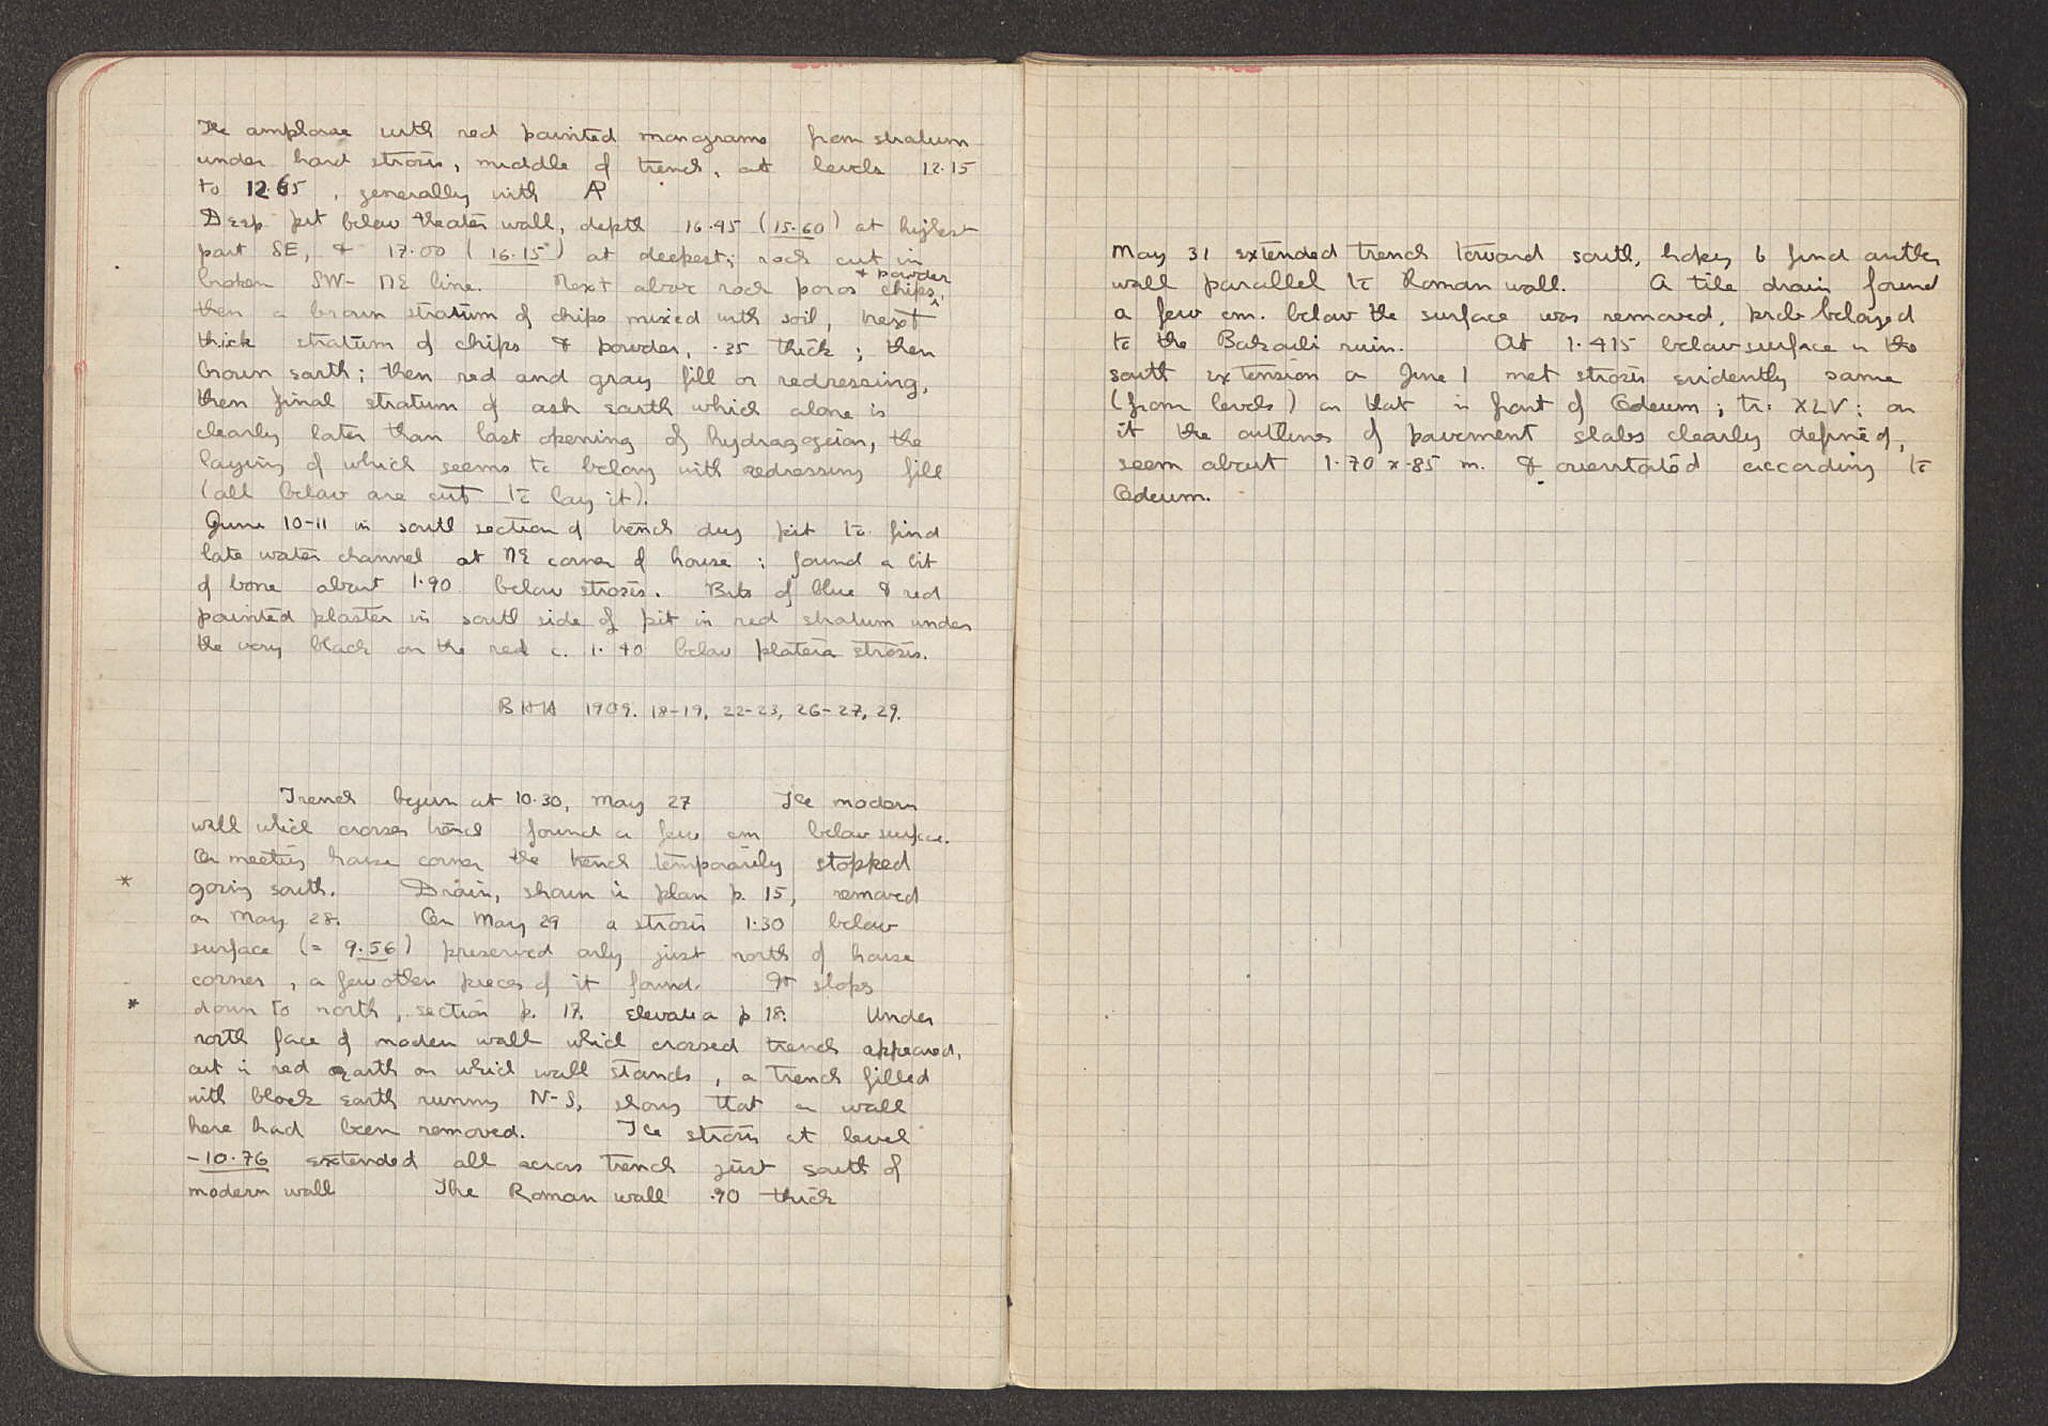 The amphorae with red painted monograms from stratum
under hard strosis, middle of trench, at levels 12.15
to 12.65, generally with
Deep pit below theater wall, depth 16.45 (15.60) at highest
part SE, & 17.00 (16.15) at deepest; rock cut in
broken SW-NE line. Next above rock poros chips & powder,
then a brown stratum of chips mixed with soil, next
thick stratum of chips & powder, .35 thick; then
brown earth; then red and gray fill or redressing,
then final stratum of ash earth which alone is
clearly later than last opening of hydragogeion, the
laying of which seems to belong with redressing fill
(all below are cut to lay it).
June 10-11 in south section of trench dug pit to find
late water channel at NE corner of house; found a bit
of bone about 1.90 below strosis. Bits of blue & red
painted plaster in south side of pit in red stratum under
the very black on the red c. 1.40 below plateia strosis.
BHH 1909. 18-19, 22-23, 26-27, 29.
Trench begun at 10.30, May 27 The modern
wall which crosses trench found a few cm below surface.
On meeting house corner the trench temporarily stopped
* going south. Drain, shown in plan p. 15, removed
on May 28. On May 29 a strosis 1.30 below
surface (= 9.56) preserved only just north of house
corner, a few other pieces of it found. It slopes
* down to north, section p. 17. Elevation p 18. Under
north face of modern wall which crossed trench appeared,
cut in red earth on which wall stands, a trench filled
with black earth running N-S, showing that a wall
here had been removed. The strosis at level
-10.76 extended all across trench just south of
modern wall The Roman wall .90 thick
May 31 extended trench toward south, hoping to find another
wall parallel to Roman wall. A tile drain found
a few cm. below the surface was removed, prob belonged
to the ruin. At 1.415 below surface in the
south extension on June 1 met strosis evidently same
(from levels) as that in front of Odeum; tr. XLV; on
it the outlines of pavement slabs clearly defined,
seem about 1.70 x .85 m. & orientated according to
Odeum.